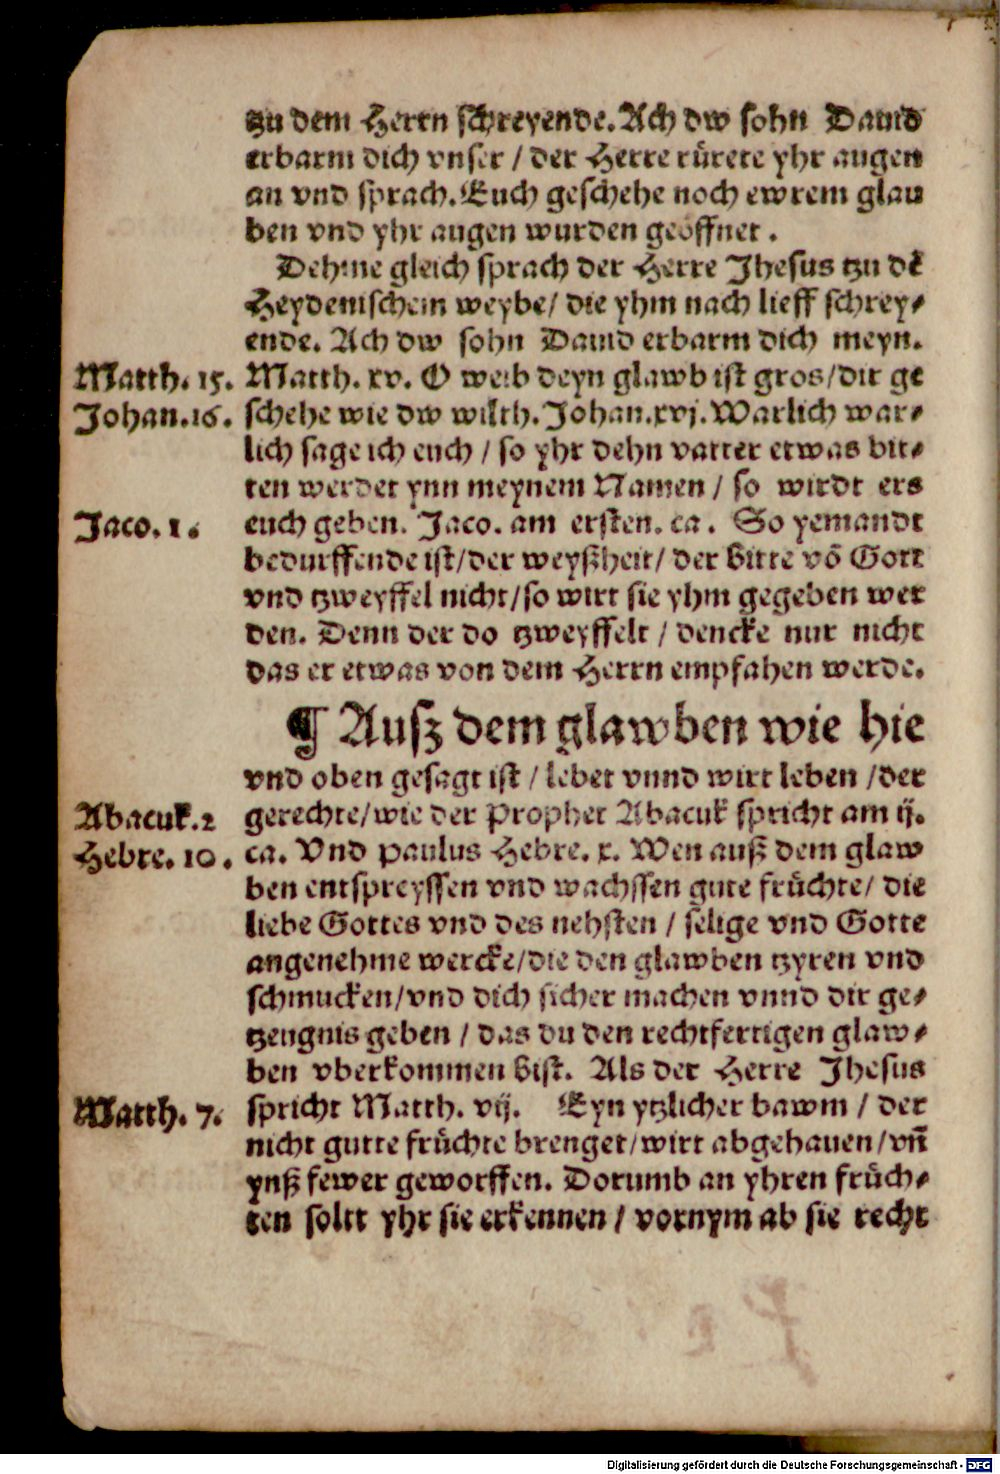 tzu dem Herrn schreyende. Ach dw sohn Dauid
erbarm dich vnser / der Herre růrete yhr augen
an vnd sprach. Euch geschehe noch ewrem glau
ben vnd yhr augen wurden geöffnet.
Dehme gleich sprach der Herre Jhesus tzu dē
Heydenischem weybe / die yhm nach lieff schrey⸗
ende. Ach dw sohn Dauid erbarm dich meyn.
Matth. 15. Matth. xv. O weib deyn glawb ist gros / dir ge
Johan. 16. schehe wie dw wilth. Johan. xvj. Warlich war⸗
lich sage ich euch / so yhr dehn vatter etwas bit⸗
ten werdet ynn meynem Namen / so wirdt ers
Jaco. 1. euch geben. Jaco. am ersten. ca. So yemandt
bedurffende ist / der weyßheit / der bitte võ Gott
vnd tzweyffel nicht / so wirt sie yhm gegeben wer
den. Denn der do tzweyffelt / dencke nur nicht
das er etwas von dem Herrn empfahen werde.
¶ Ausz dem glawben wie hie
vnd oben gesagt ist / lebet vnnd wirt leben / der
Abacuk. 2 gerechte / wie der Prophet Abacuk spricht am ij.
Hebre. 10. ca. Vnd Paulus Hebre. x. Wen auß dem glaw
ben entspreyssen vnd wachssen gute frůchte / die
liebe Gottes vnd des nehsten / selige vnd Gotte
angenehme wercke / die den glawben tzyren vnd
schmucken / vnd dich sicher machen vnnd dir ge⸗
tzeugnis geben / das du den rechtfertigen glaw⸗
ben vberkommen bist. Als der Herre Jhesus
Matth. 7. spricht Matth. vij. Eyn ytzlicher bawm / der
nicht gutte frůchte brenget / wirt abgehauen / vñ
ynß fewer geworffen. Dorumb an yhren frůch⸗
ten solt yhr sie erkennen / vornym ab sie recht
Digitalisierung gefördert durch die Deutsche Forschungsgemeinschaft - DFG